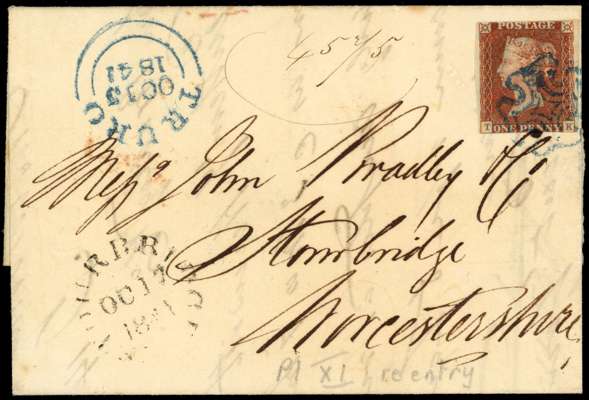 TRURO
OC 15
1841
45 7/5
POSTAGE
T ONE PENNY K
Messrs John Bradley & Co
Stourbridge
Worcestershire
STOURBRIDGE
OC 17
1841
Pl XI re entry